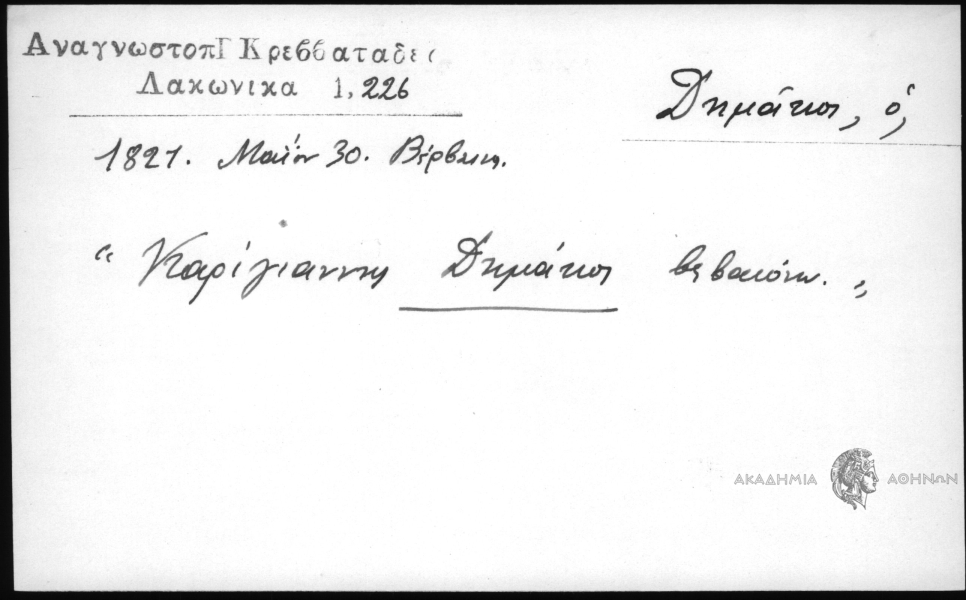 ΑναγνωστοπΓ Κρεββαταδες
Λακωνικα 1,226
Δημάκος, ὁ,
1821. Μαΐου 30. Βέρβενα.
“ Καρίγιαννης Δημάκος βεβαιόνω. „
ΑΚΑΔΗΜΙΑ ΑΘΗΝΩΝ